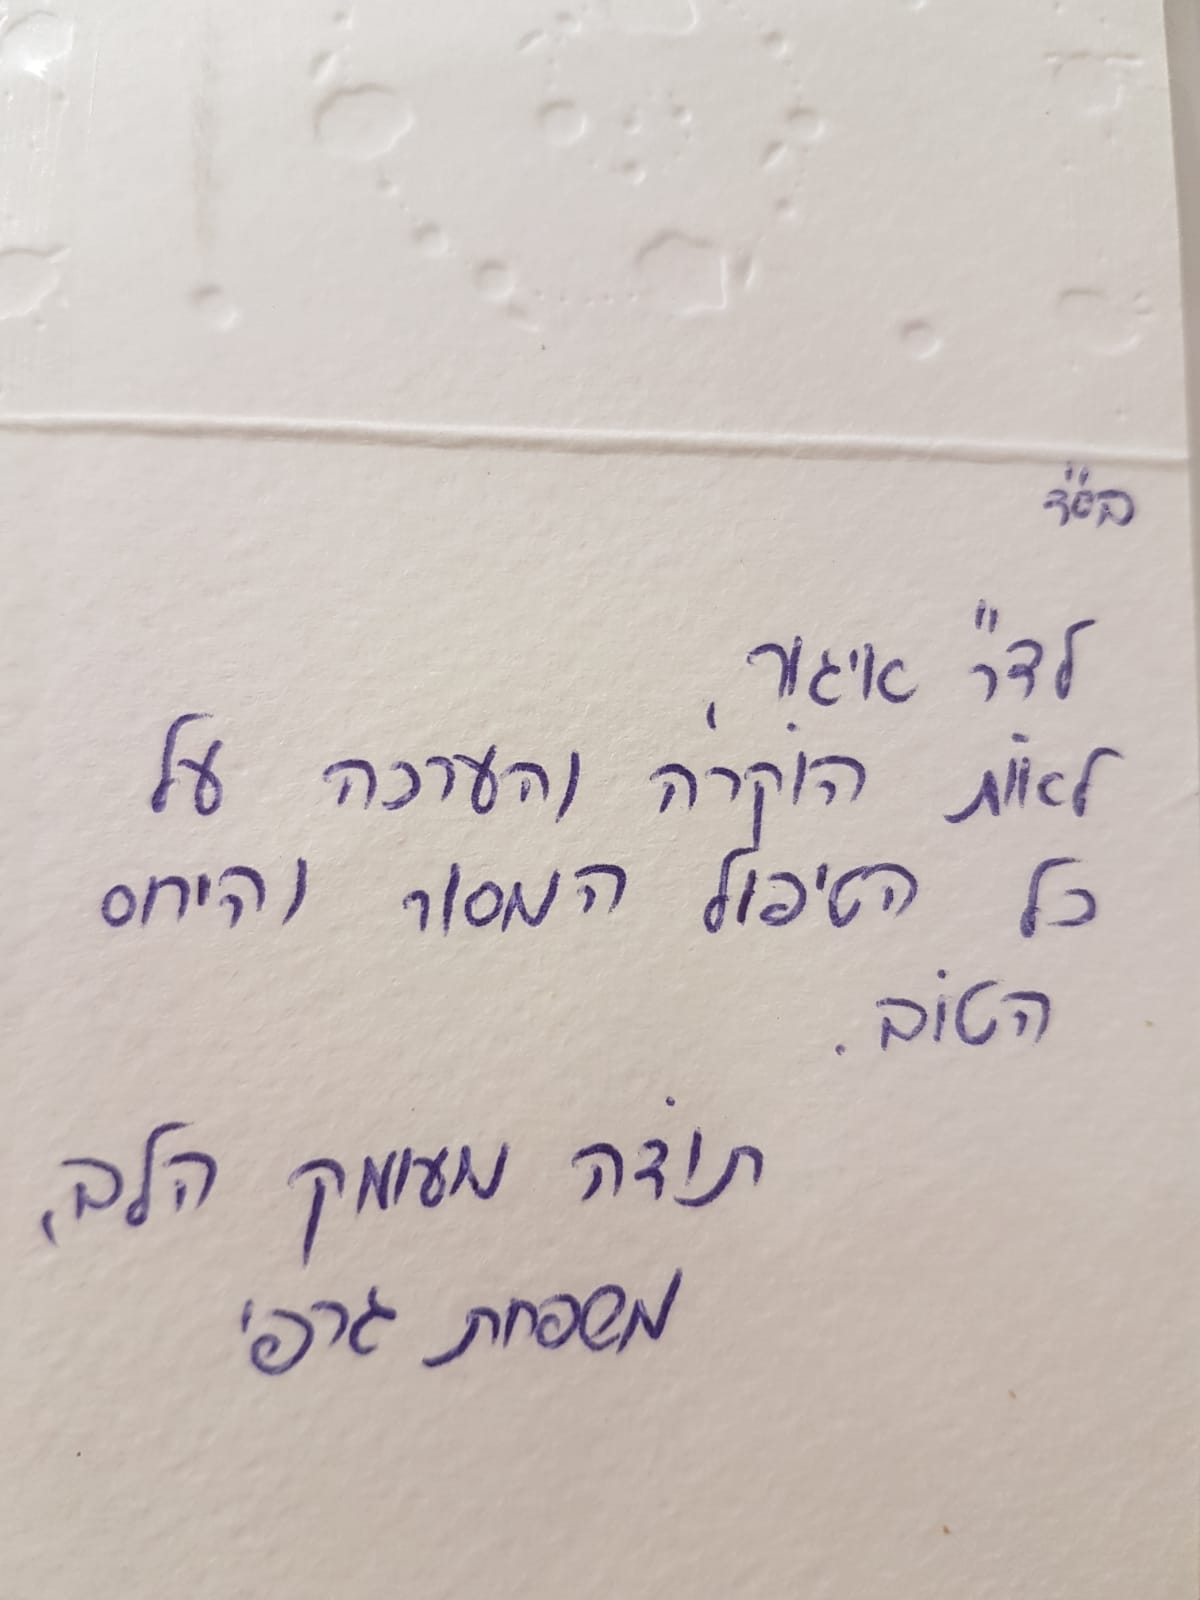 בס"ד
לד"ר איגור,
לאות הוקרה והערכה על
כל הטיפול המסור והיחס
הטוב.
תודה מעומק הלב,
משפחת גרפי